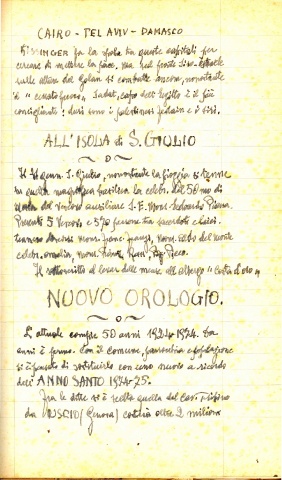 CAIRO - TEL AVIV - DAMASCO
KISSINGER fa la spola tra queste capitali per
cercare di mettere la pace, ma sul fronte
sulle alture del Golan si combatte ancora, nonostante
il "cessate fuoco". Sadat, capo dell'Egitto è il più
consigliante: duri sono i palestinesi fedain e i siri.
ALL'ISOLA di S. GIULIO
Il 31 genn. S. Giulio, nonostante la pioggia si tenne
in quella magnifica basilica la celebr. del 50 mo di
del Vescovo ausiliare S. E. Mons.
Presenti 5 Vescovi e 570 persone tra sacerdoti e laici.
Mons. Franc. Mons. del Monte
celebr. Mons.
Il sottoscritto al levar delle mense all'albergo "
NUOVO OROLOGIO.
L'attuale compie 50 anni 1924-1974. Da
anni è fermo. Con il comune, parrocchia e popolazione
si è pensato di sostituirlo con uno nuovo a ricordo
dell'ANNO SANTO 1974-75.
Fra le ditte si è scelta quella del Cav.
da USCIO (Genova) costerà oltre 2 milioni